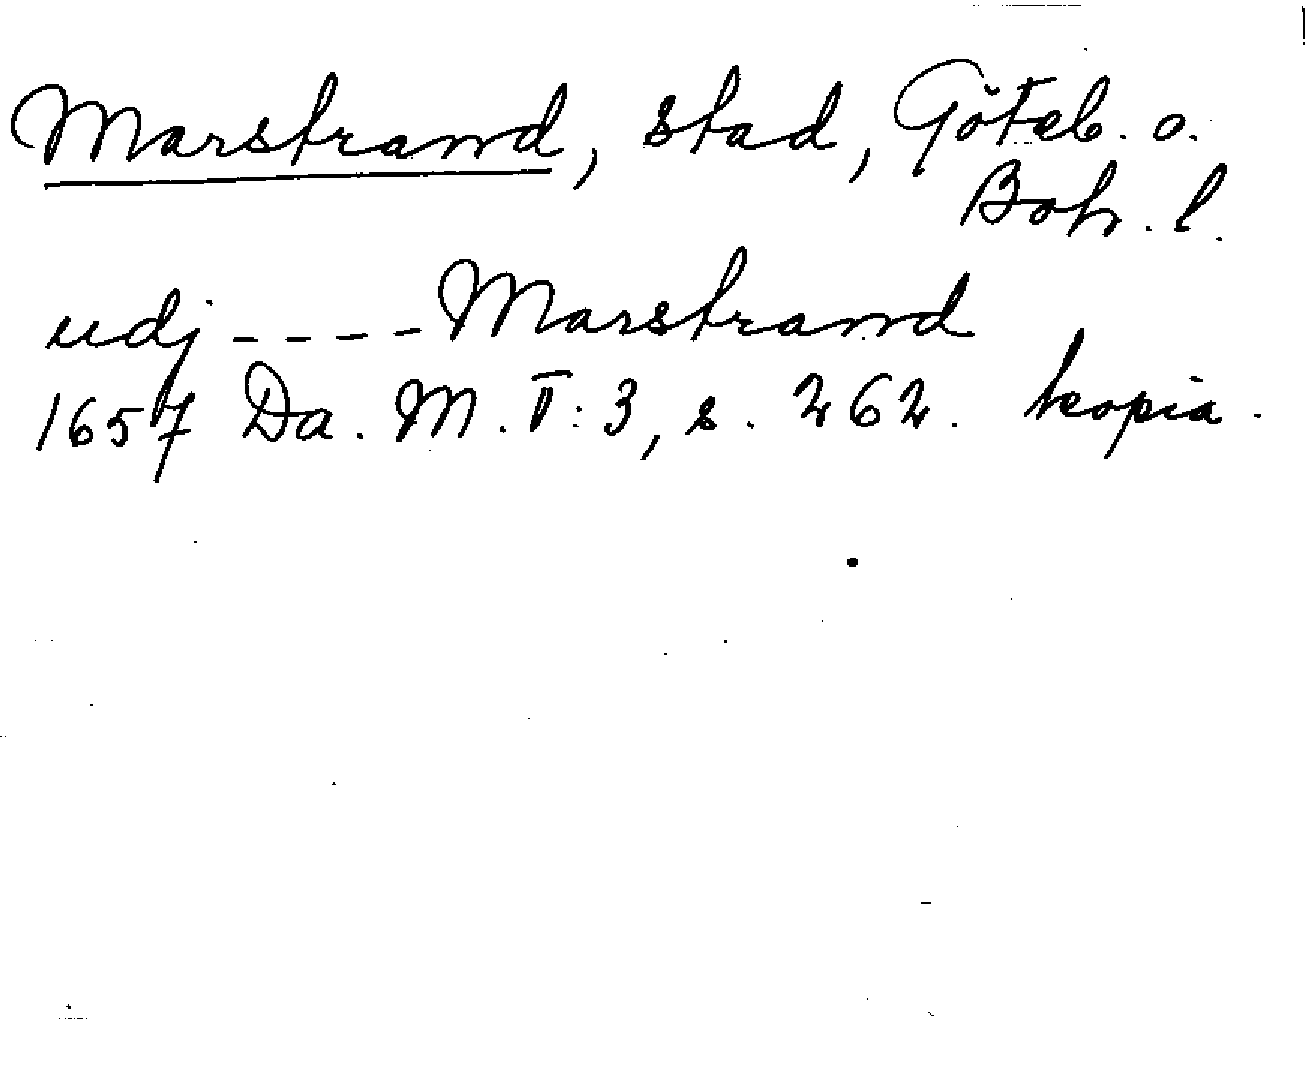 Marstrand, stad, Göteb. o.
Boh. l.
udj ---- Marstrand
1657 Da. M. V:3, s. 262. kopia.